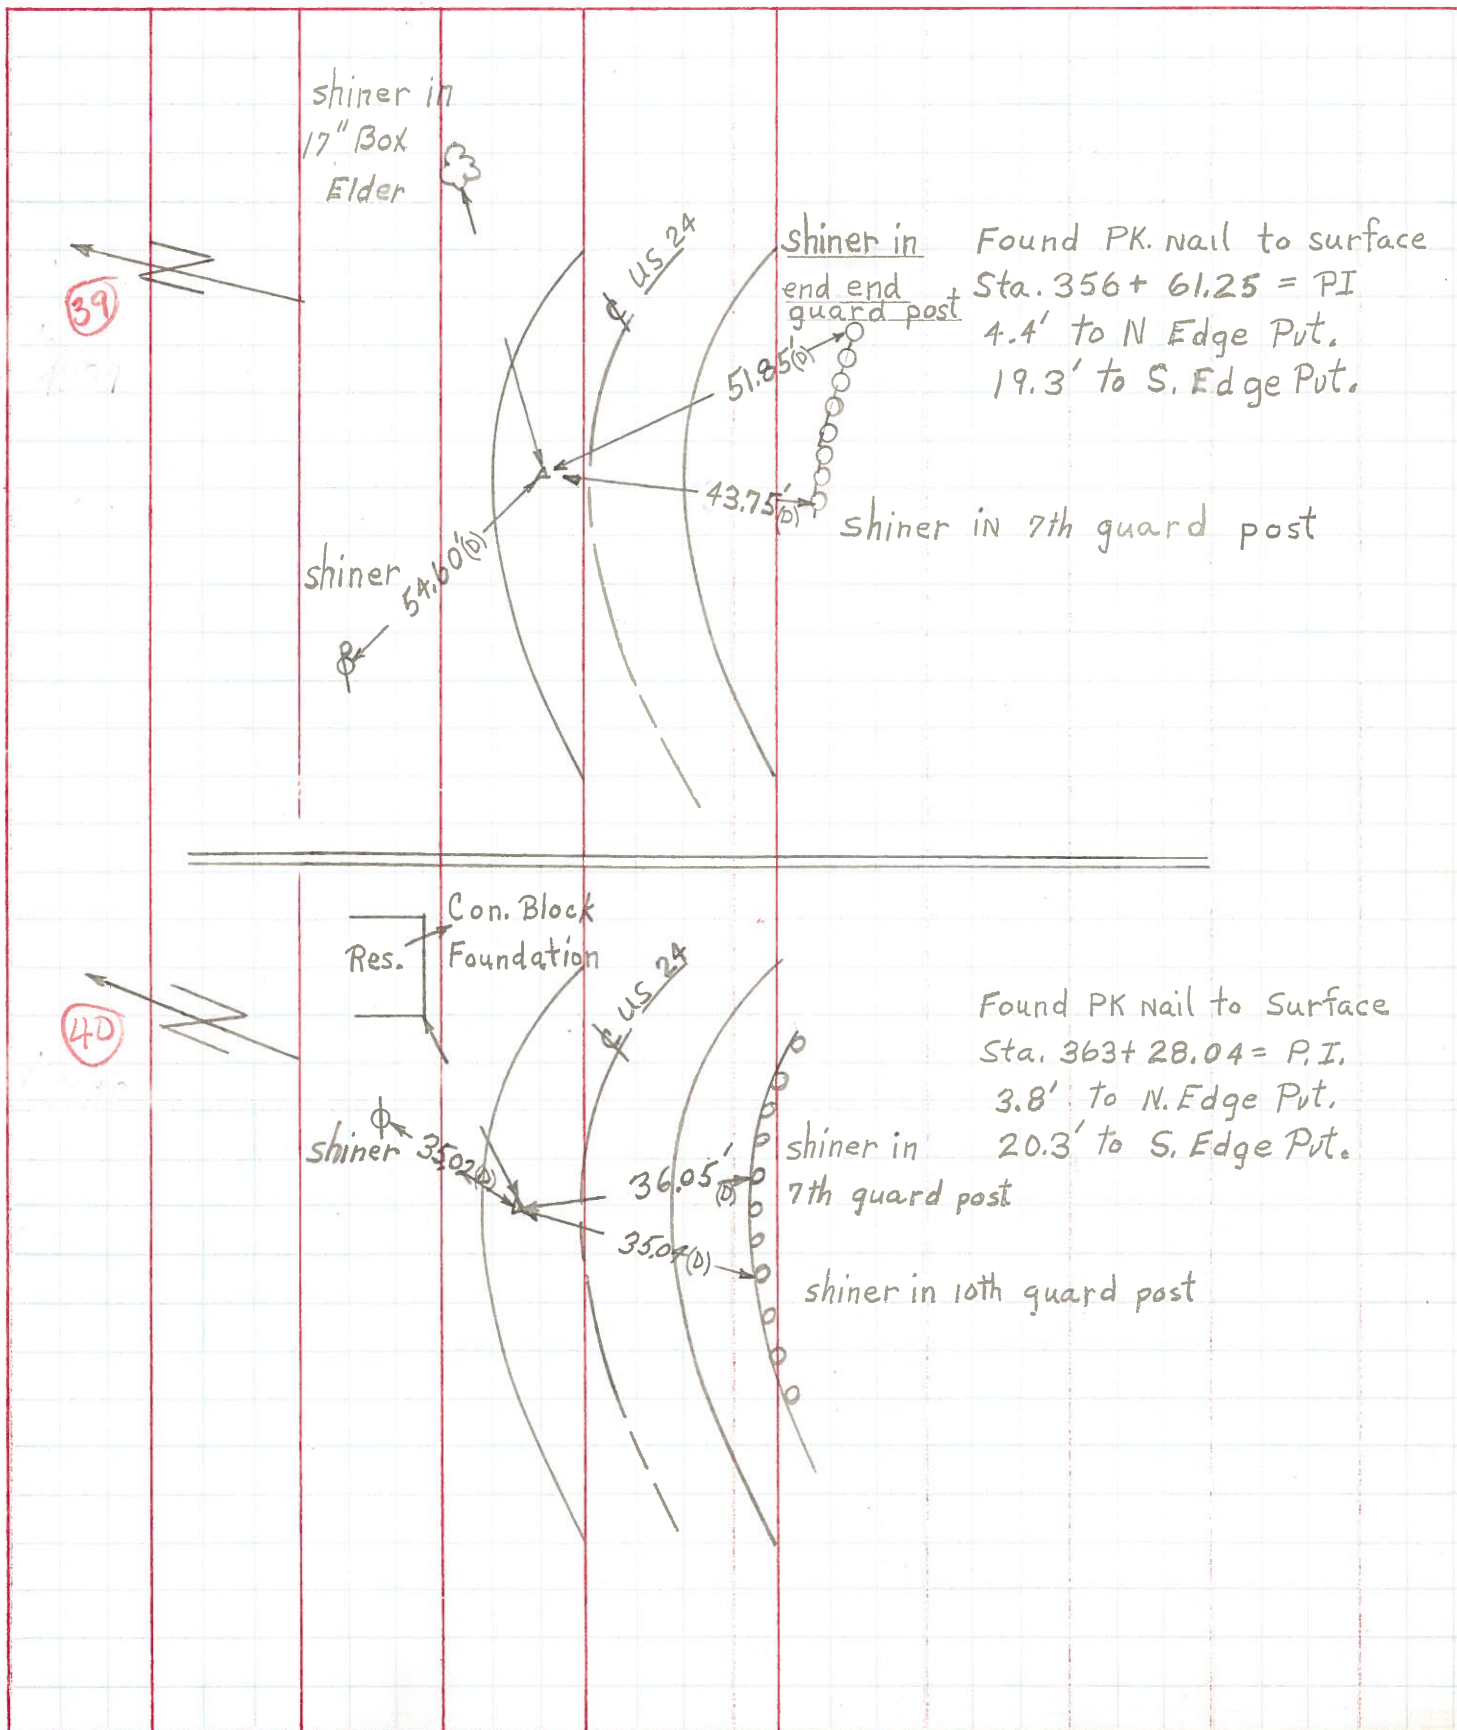 shiner in
17" Box
Elder
39
℄ US 24
shiner in
end end
guard post
Found PK. Nail to surface
Sta. 356 + 61.25 = PI
4.4' to N Edge Pvt.
19.3' to S. Edge Pvt.
51.85'(D)
43.75'(D)
shiner IN 7th guard post
shiner
54.60'(D)
Con. Block
Foundation
Res.
40
℄ US 24
Found PK Nail to Surface
Sta. 363 + 28.04 = P.I.
3.8' to N. Edge Pvt.
20.3' to S. Edge Pvt.
shiner
35.02(D)
36.05'(D)
shiner in
7th guard post
35.04(D)
shiner in 10th guard post